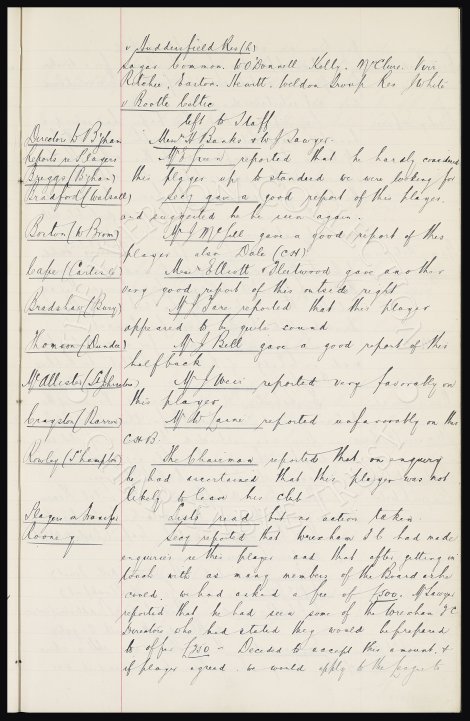 v Huddersfield Res (h)
Sagar Common. W O'Donnell Kelly. McClure. Weir
Ritchie, Easton. Hewitt. Weldon Troup Res J White
v Bootle Celtic
left to Staff
Directors to B'ham Messrs H Banks & W J Sawyer.
Reports re Players Mr Green reported that he hardly considered
Briggs (B'ham) this player up to standard we were looking for
Bradford (Walsall) Secy gave a good report of this player.
and suggested he be seen again.
Boston (W Brom) Mr J McGill gave a good report of this
player also Dale (CH)
Cape (Carlisle) Messrs Elliott & Fleetwood gave another
very good report of this outside right
Bradshaw (Bury) Mr J Fare reported that this player
appeared to be quite sound
Thomson (Dundee) Mr J Bell gave a good report of this
halfback
McAllister (St Johnston) Mr J Weir reported very favorably on
this player
Crayston (Barrow) Mr W reported unfavorably on this
C H B
Rowley (S'hampton) The Chairman reported that on enquiry
he had ascertained that this player was not
likely to leave his club
Players on Transfer Lists read but no action taken.
Rooney Secy reported that Wrexham F C had made
enquiries re this player and that after getting in
touch with as many members of the Board as he
could, we had asked a fee of £500. Mr Sawyer
reported that he had seen some of the Wrexham F C
Directors who had stated they would be prepared
to offer £250 - Decided to accept this amount, &
if player agreed. we would apply to the League to